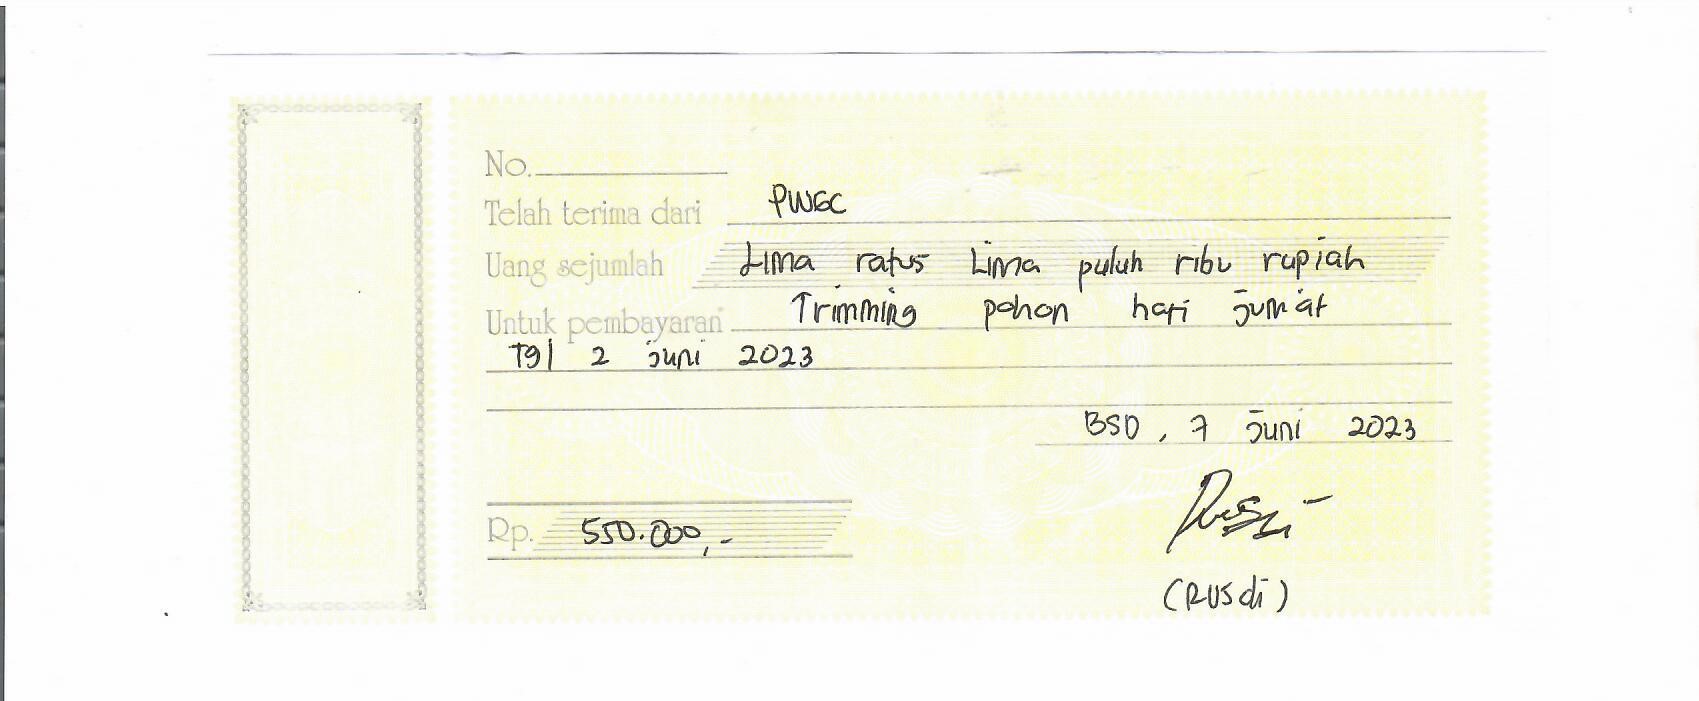 No.
Telah terima dari PWGC
Uang sejumlah Lima ratus Lima puluh ribu rupiah
Untuk pembayaran Trimming pohon hari jum'at
Tgl 2 juni 2023
BSD, 7 juni 2023
Rp. 550.000,-
(RUSdi)